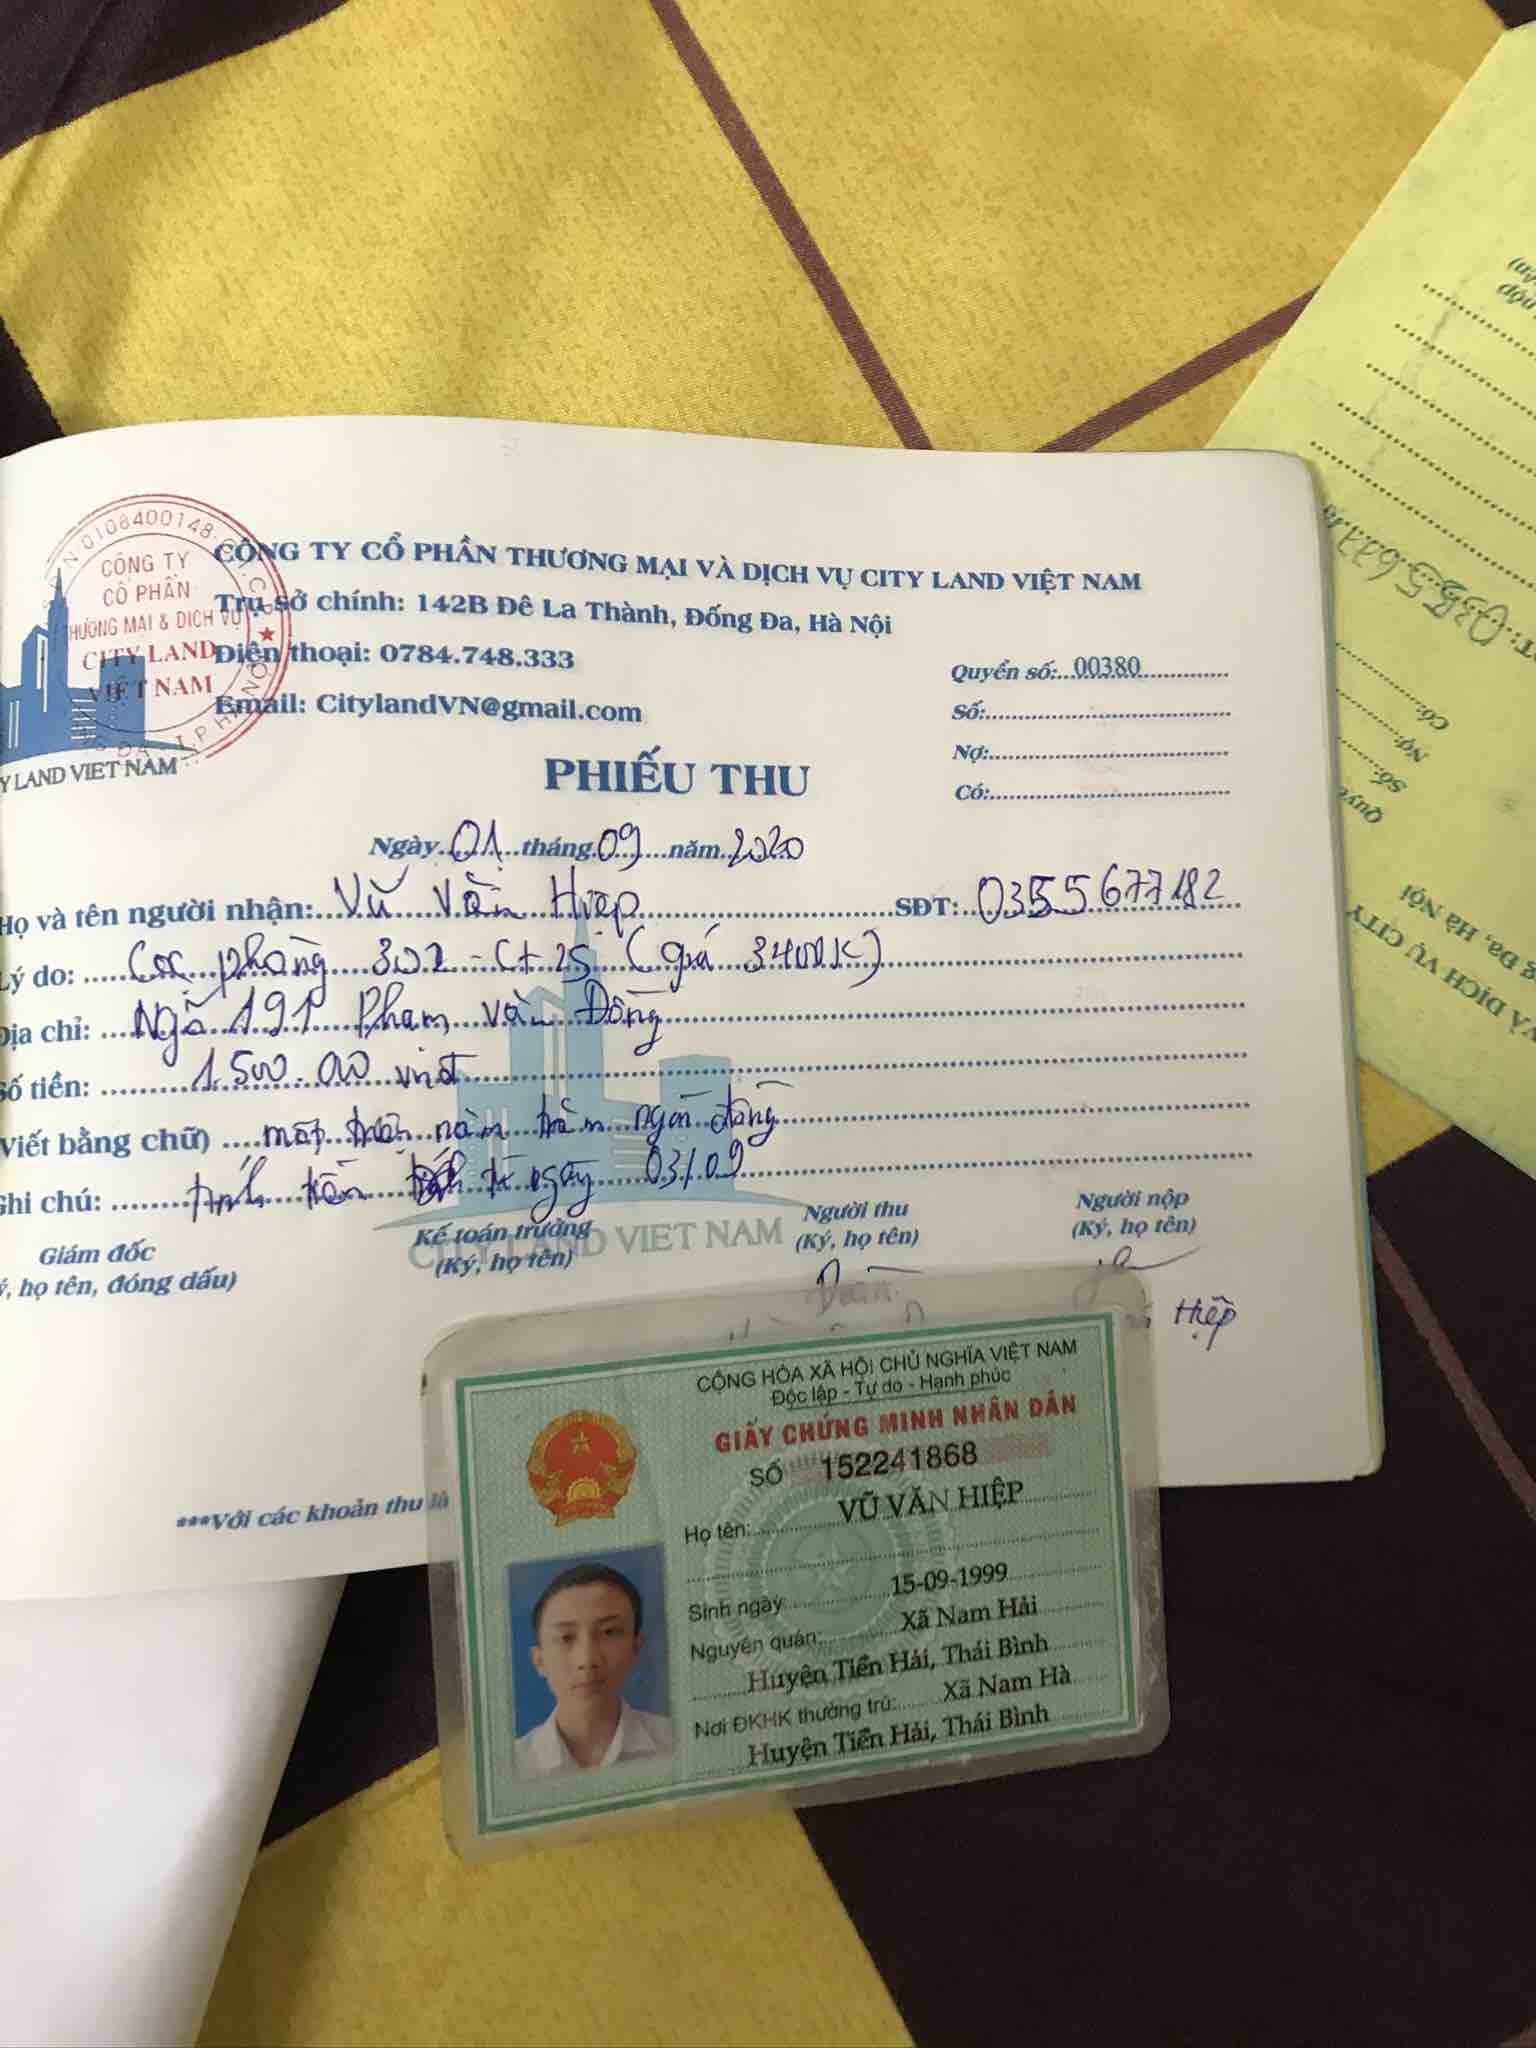 CÔNG TY CỔ PHẦN THƯƠNG MẠI VÀ DỊCH VỤ CITY LAND VIỆT NAM
Trụ sở chính: 142B Đê La Thành, Đống Đa, Hà Nội
Điện thoại: 0784.748.333
Email: CitylandVN@gmail.com
0108400148
CÔNG TY
CỔ PHẦN
THƯƠNG MẠI & DỊCH VỤ
CITY LAND
VIỆT NAM
Y LAND VIET NAM
Quyển số: 00380
Số:
Nợ:
Có:
PHIẾU THU
Ngày 01 tháng 09 năm 2020
Họ và tên người nhận: Vũ Văn Hiệp SĐT: 0355677182
Lý do: Cọc phòng 302 - C+25 (giá 3400K)
Địa chỉ: Ngõ 191 Phạm Văn Đồng
Số tiền: 1.500.00 vnđ
Viết bằng chữ) một triệu năm trăm ngàn đồng
Ghi chú: tính tiền từ ngày 03/09
CITY LAND VIET NAM
Giám đốc
ý, họ tên, đóng dấu)
Kế toán trưởng
(Ký, họ tên)
Người thu
(Ký, họ tên)
Người nộp
(Ký, họ tên)
Hiệp
***Với các khoản thu là
CỘNG HÒA XÃ HỘI CHỦ NGHĨA VIỆT NAM
Độc lập - Tự do - Hạnh phúc
GIẤY CHỨNG MINH NHÂN DÂN
SỐ 152241868
Họ tên: VŨ VĂN HIỆP
Sinh ngày: 15-09-1999
Nguyên quán: Xã Nam Hải
Huyện Tiền Hải, Thái Bình
Nơi ĐKHK thường trú: Xã Nam Hà
Huyện Tiền Hải, Thái Bình
VÀ DỊCH VỤ CITY
g Đa, Hà Nội
Quyể
Số:
Nợ:
Có:
nộp